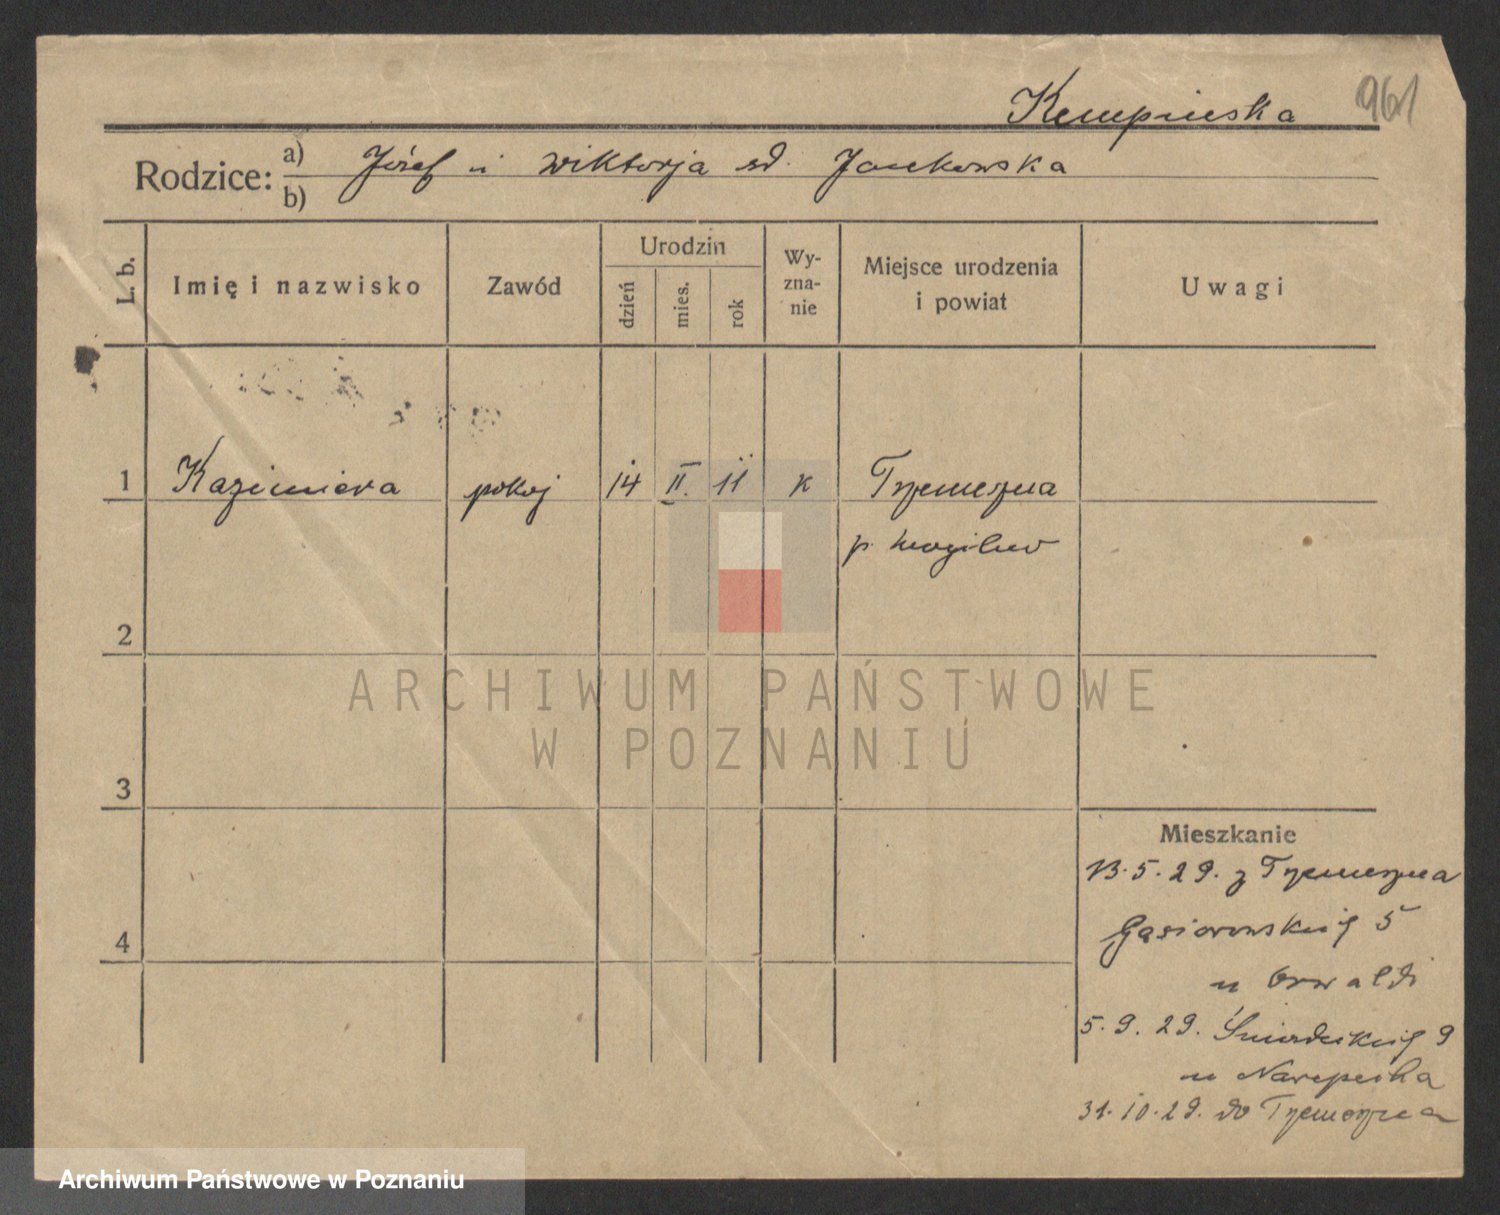 Kempinska 961
Rodzice: a) Józef i Wiktorja sd. Jankowska
b)
L. b. Imię i nazwisko Zawód Urodzin dzień mies. rok Wy-zna-nie Miejsce urodzenia i powiat Uwagi
1 Kazimiera pokoj 14 II. 11 K Trzemeszna
p. mogilno
2
ARCHIWUM PAŃSTWOWE
W POZNANIU
3
Mieszkanie
13.5.29. z Trzemeszna
4 Gąsiorowskich 5
u
5.9.29. Śniadeckich 9
u
31.10.29. do Trzemeszna
Archiwum Państwowe w Poznaniu